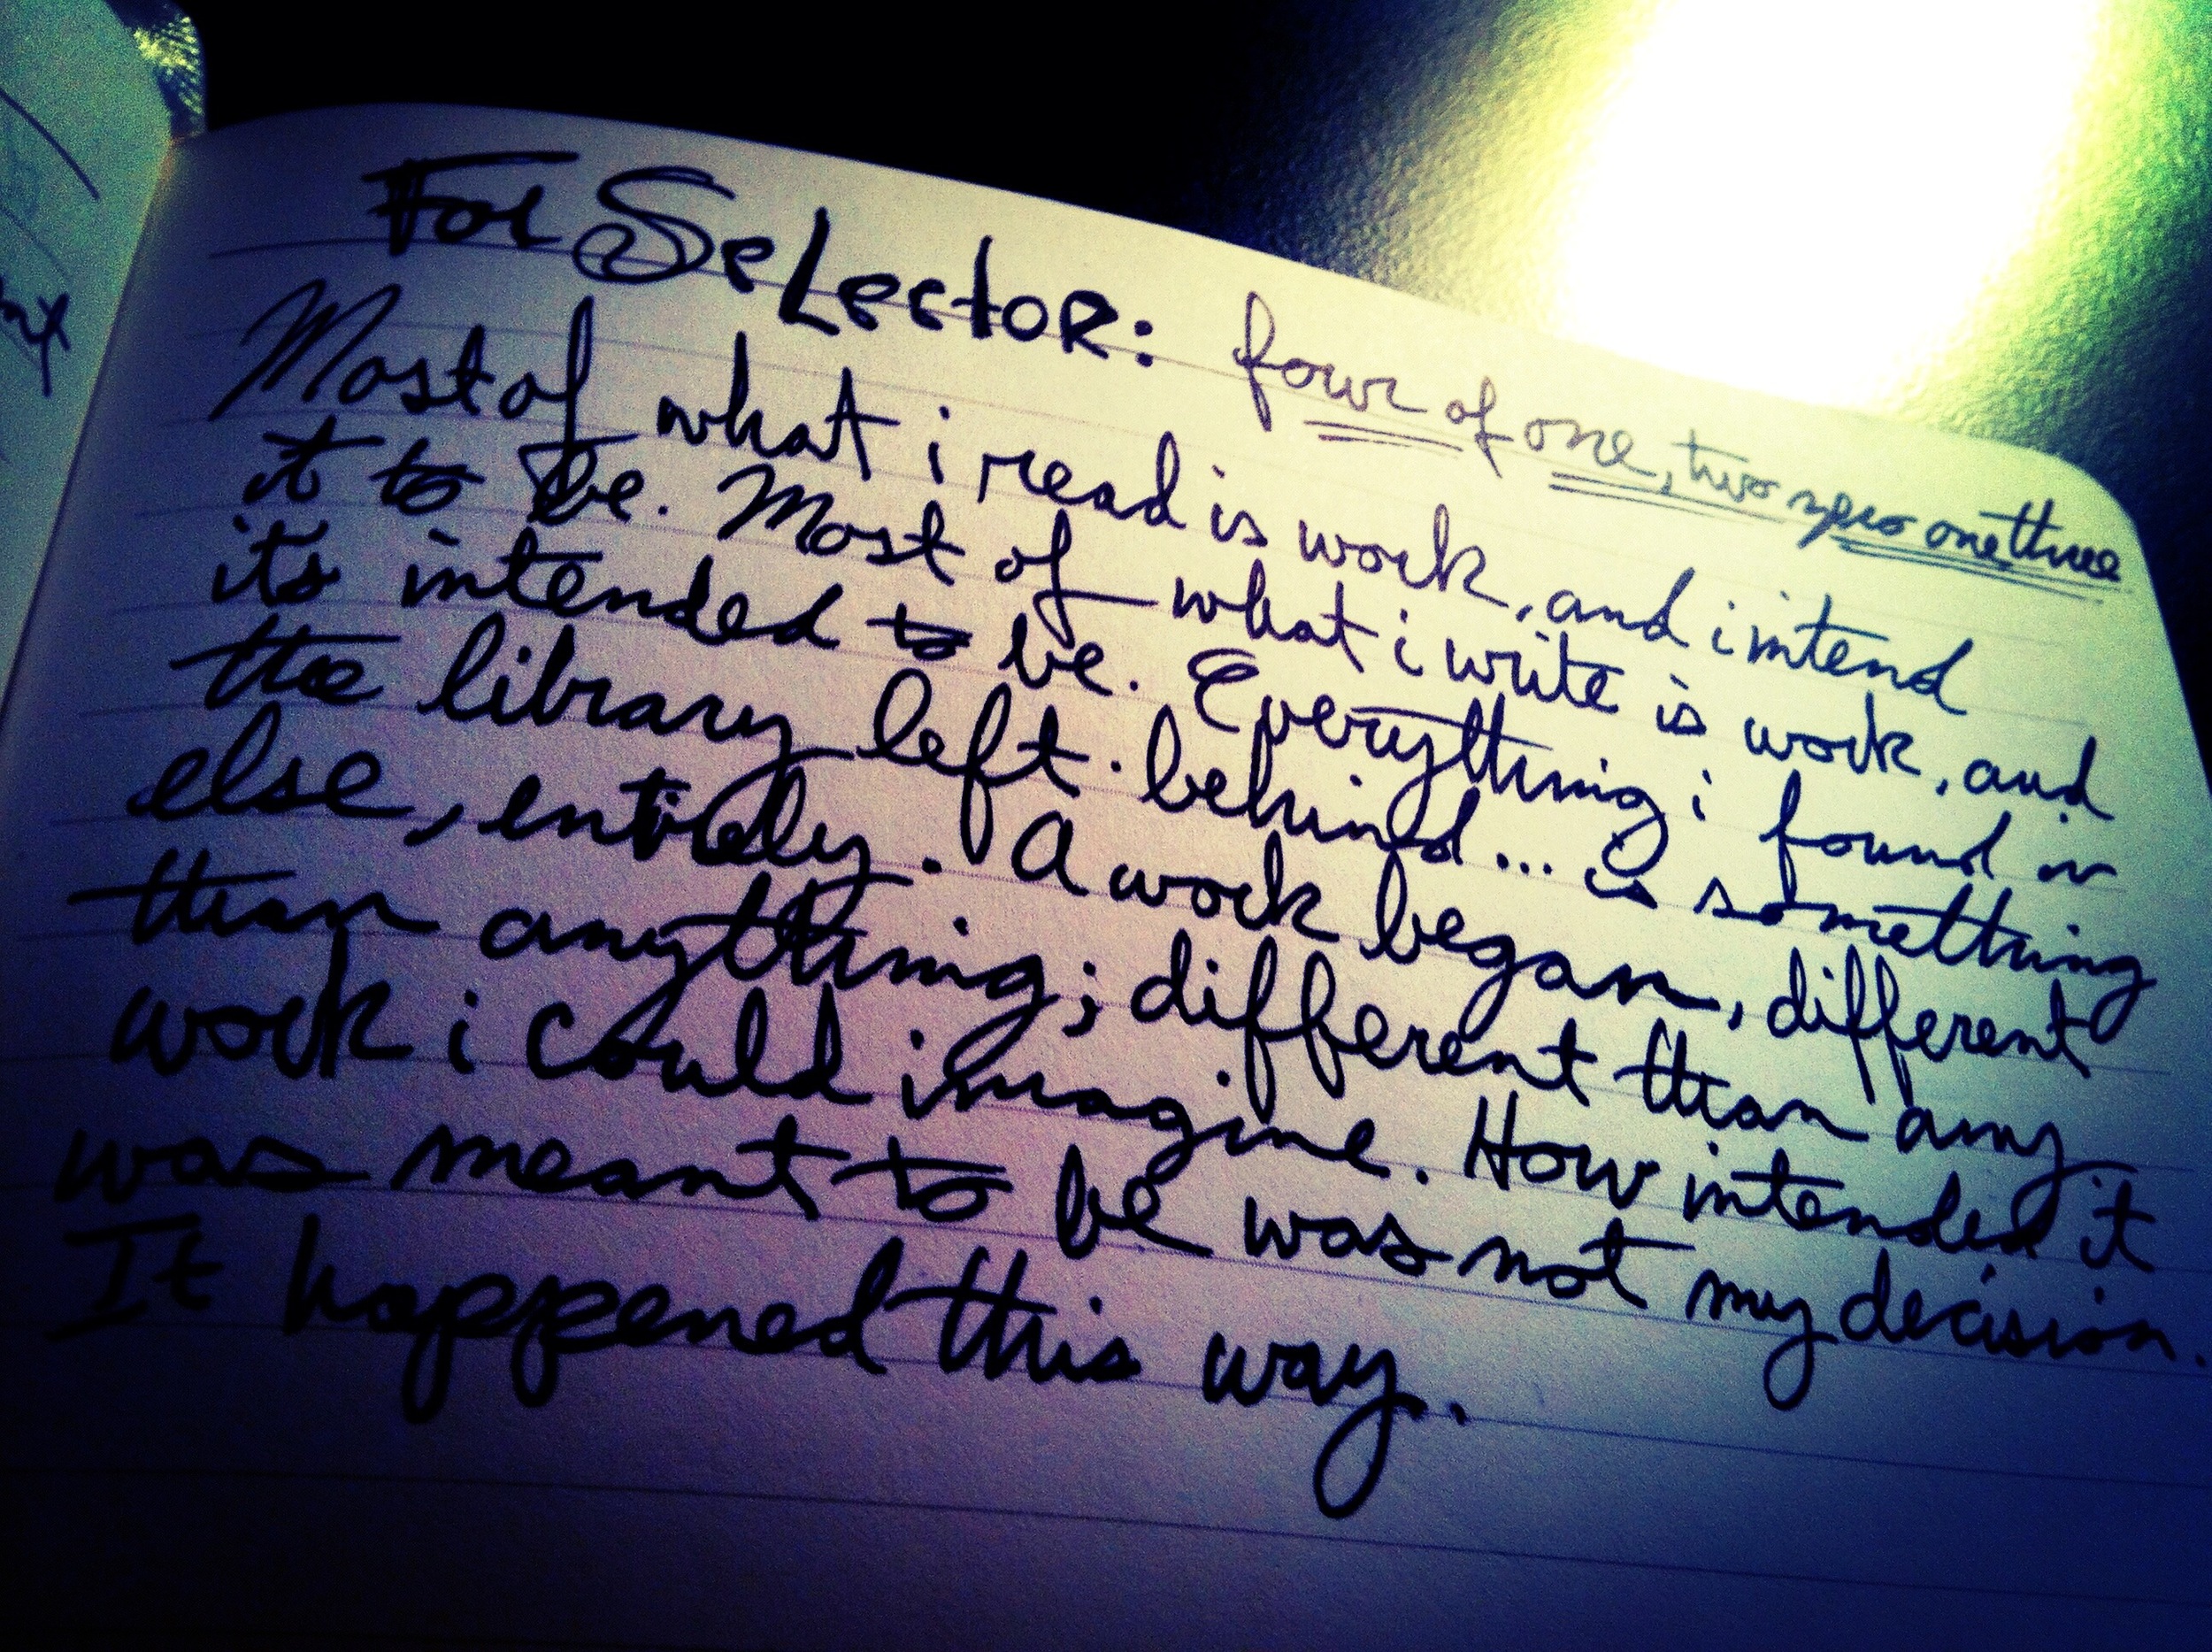 For SeLector: four of one, two zero one three
Most of what i read is work, and i intend
it to be. Most of what i write is work, and
its intended to be. Everything i found in
the library left behind... is something
else, entirely. A work began, different
than anything; different than any
work i could imagine. How intended it
was meant to be was not my decision.
It happened this way.